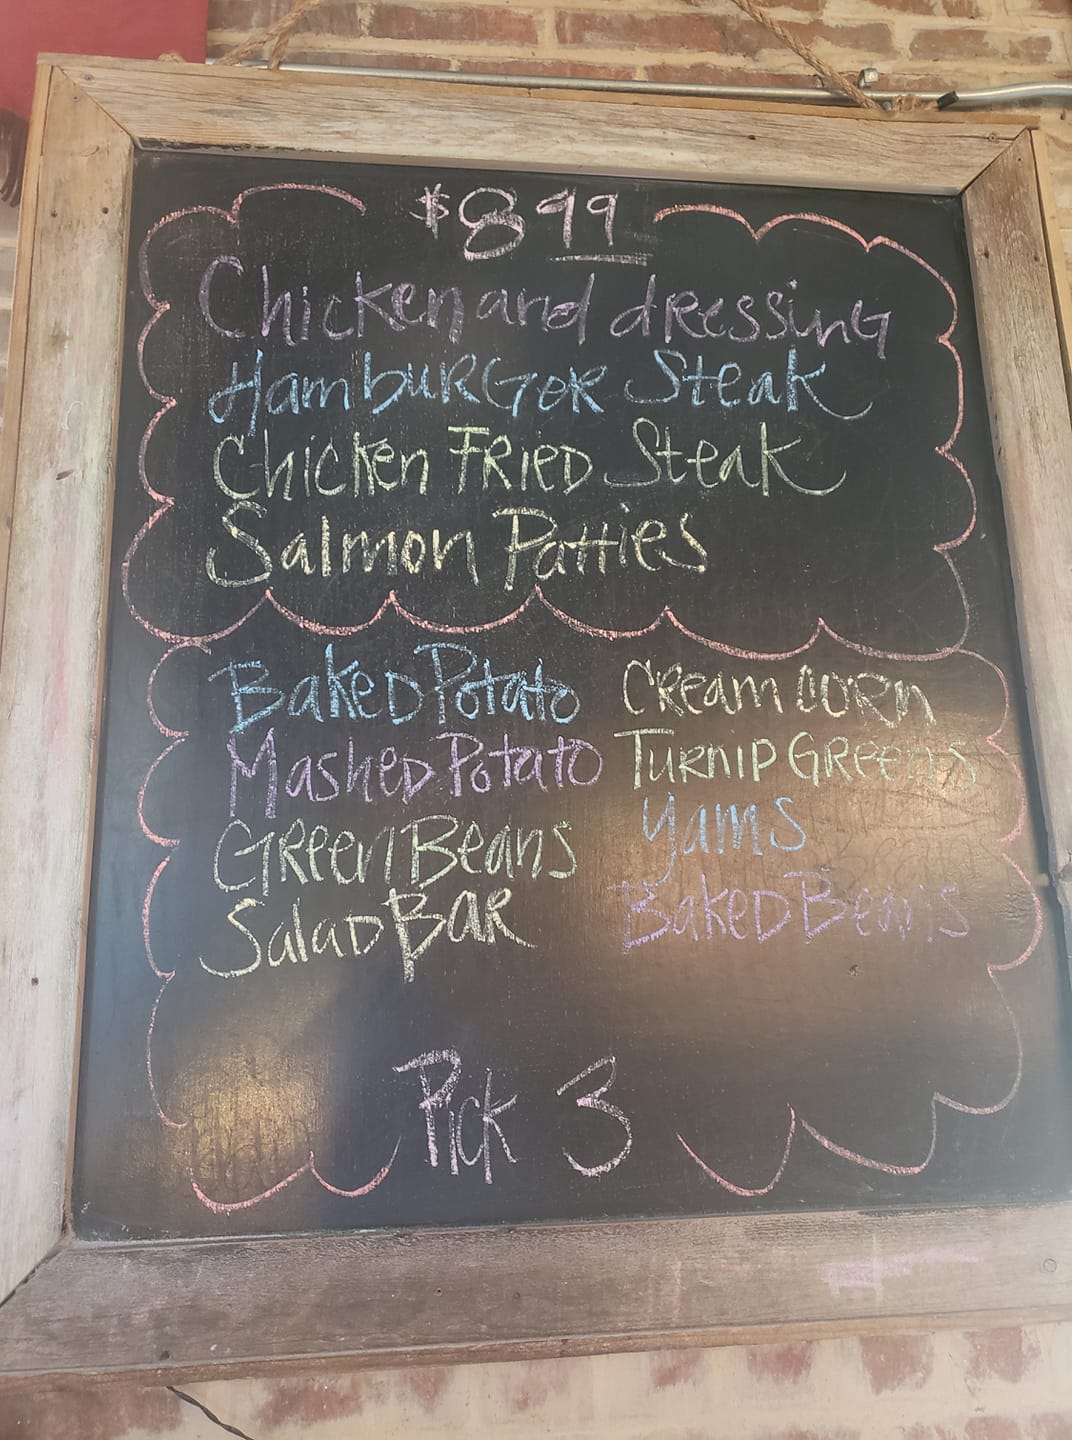 $8.99
Chicken and dressing
Hamburger Steak
Chicken Fried Steak
Salmon Patties
Baked Potato
Mashed Potato
Green Beans
Salad Bar
Cream corn
Turnip Greens
Yams
Baked Beans
Pick 3